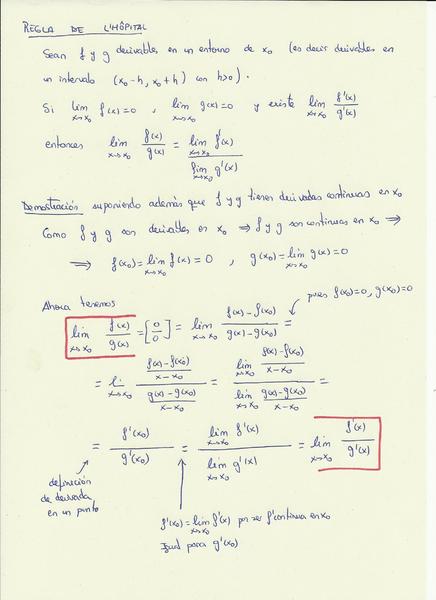 REGLA DE L'HÔPITAL
Sean f y g derivables en un entorno de x₀ (es decir derivables en
un intervalo (x₀-h, x₀+h) con h>0).
Si lim x→x₀ f(x)=0 , lim x→x₀ g(x)=0 y existe lim x→x₀ f'(x)/g'(x)
entonces lim x→x₀ f(x)/g(x) = lim x→x₀ f'(x) / lim x→x₀ g'(x)
Demostración suponiendo además que f y g tienen derivadas continuas en x₀
Como f y g son derivables en x₀ ⇒ f y g son continuas en x₀ ⇒
⇒ f(x₀)=lim x→x₀ f(x)=0 , g(x₀)=lim x→x₀ g(x)=0
Ahora tenemos
pues f(x₀)=0, g(x₀)=0
lim x→x₀ f(x)/g(x) = [0/0] = lim x→x₀ (f(x)-f(x₀))/(g(x)-g(x₀)) =
= lim x→x₀ ((f(x)-f(x₀))/(x-x₀))/((g(x)-g(x₀))/(x-x₀)) = (lim x→x₀ (f(x)-f(x₀))/(x-x₀))/(lim x→x₀ (g(x)-g(x₀))/(x-x₀)) =
= f'(x₀)/g'(x₀) = lim x→x₀ f'(x) / lim x→x₀ g'(x) = lim x→x₀ f'(x)/g'(x)
definición
de derivada
en un punto
f'(x₀)=lim x→x₀ f'(x) por ser f' continua en x₀
Igual para g'(x₀)